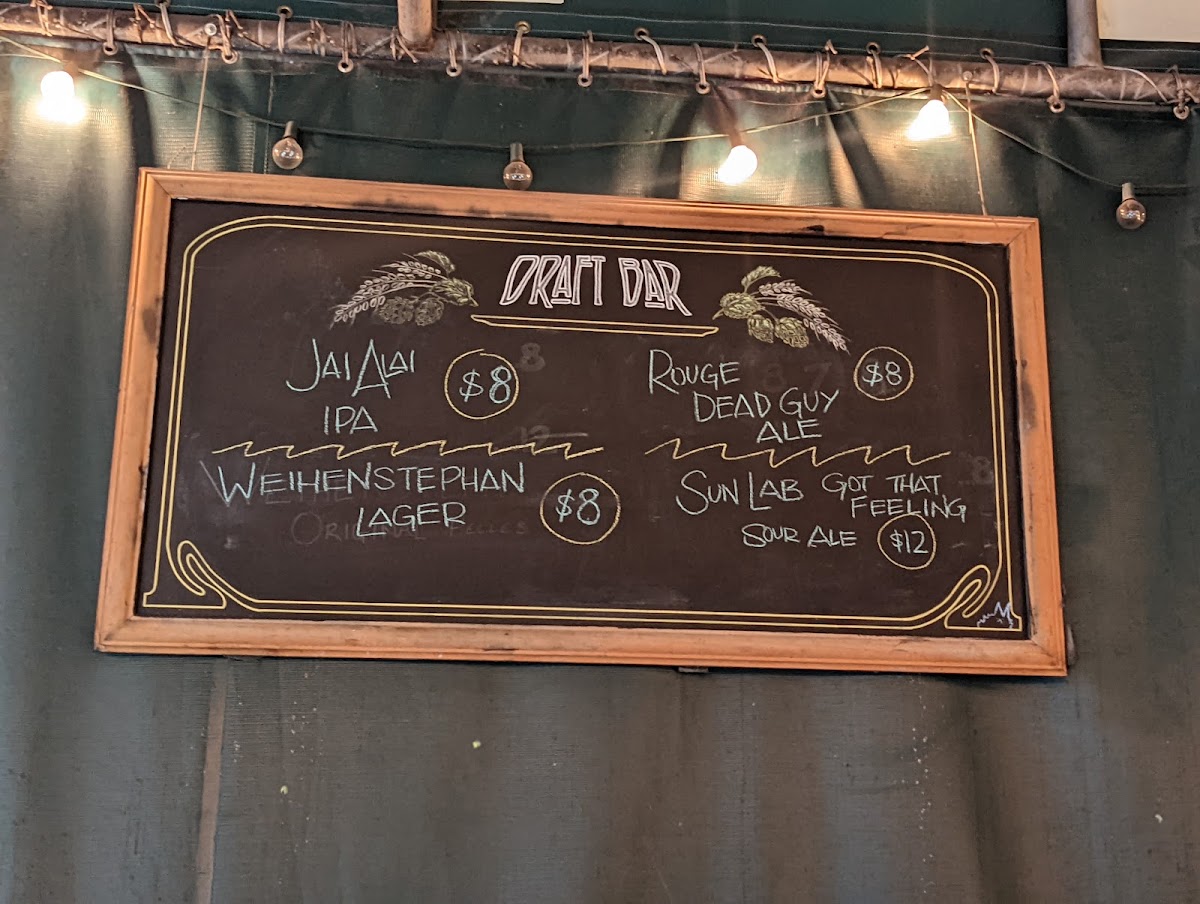 DRAFT BAR
JAI ALAI $8
IPA
WEIHENSTEPHAN
LAGER $8
ROUGE $8
DEAD GUY
ALE
SUN LAB GOT THAT
FEELING
SOUR ALE $12